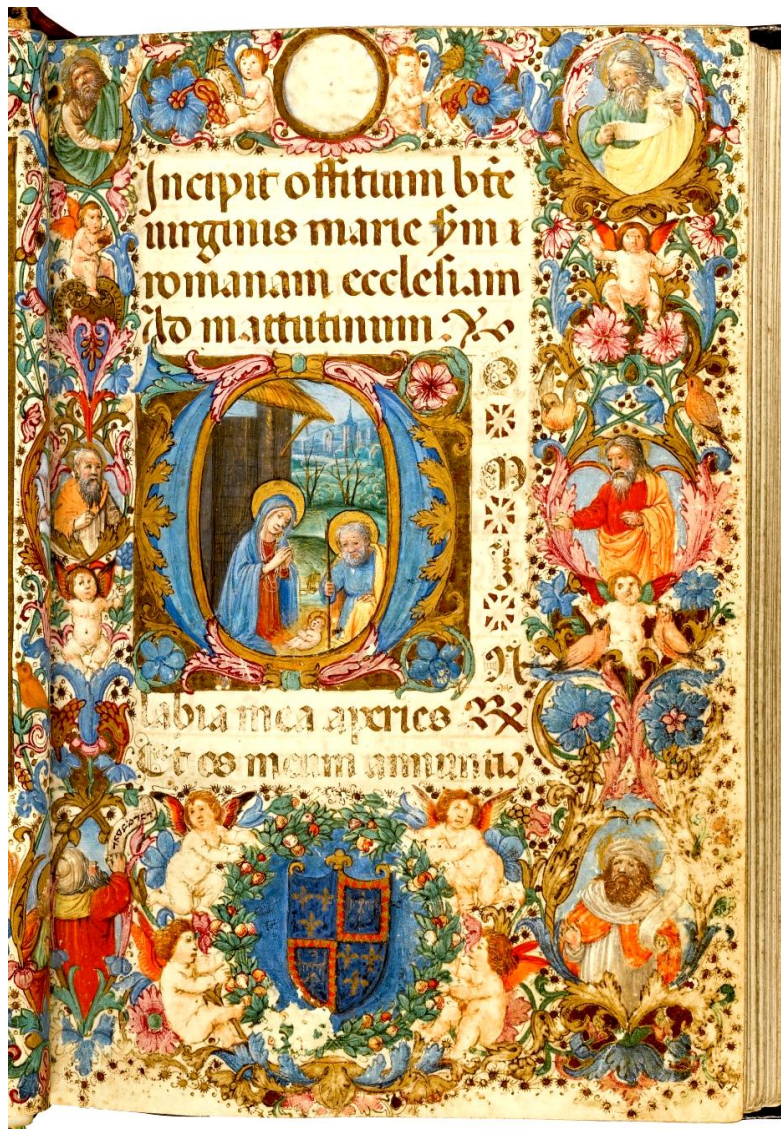 Incipit offitium bt̄e
uirginis marie s̄m
romanam ecclesiam
Ad mattutinum
D O M I N
labia mea aperies
Et os meum annuntia